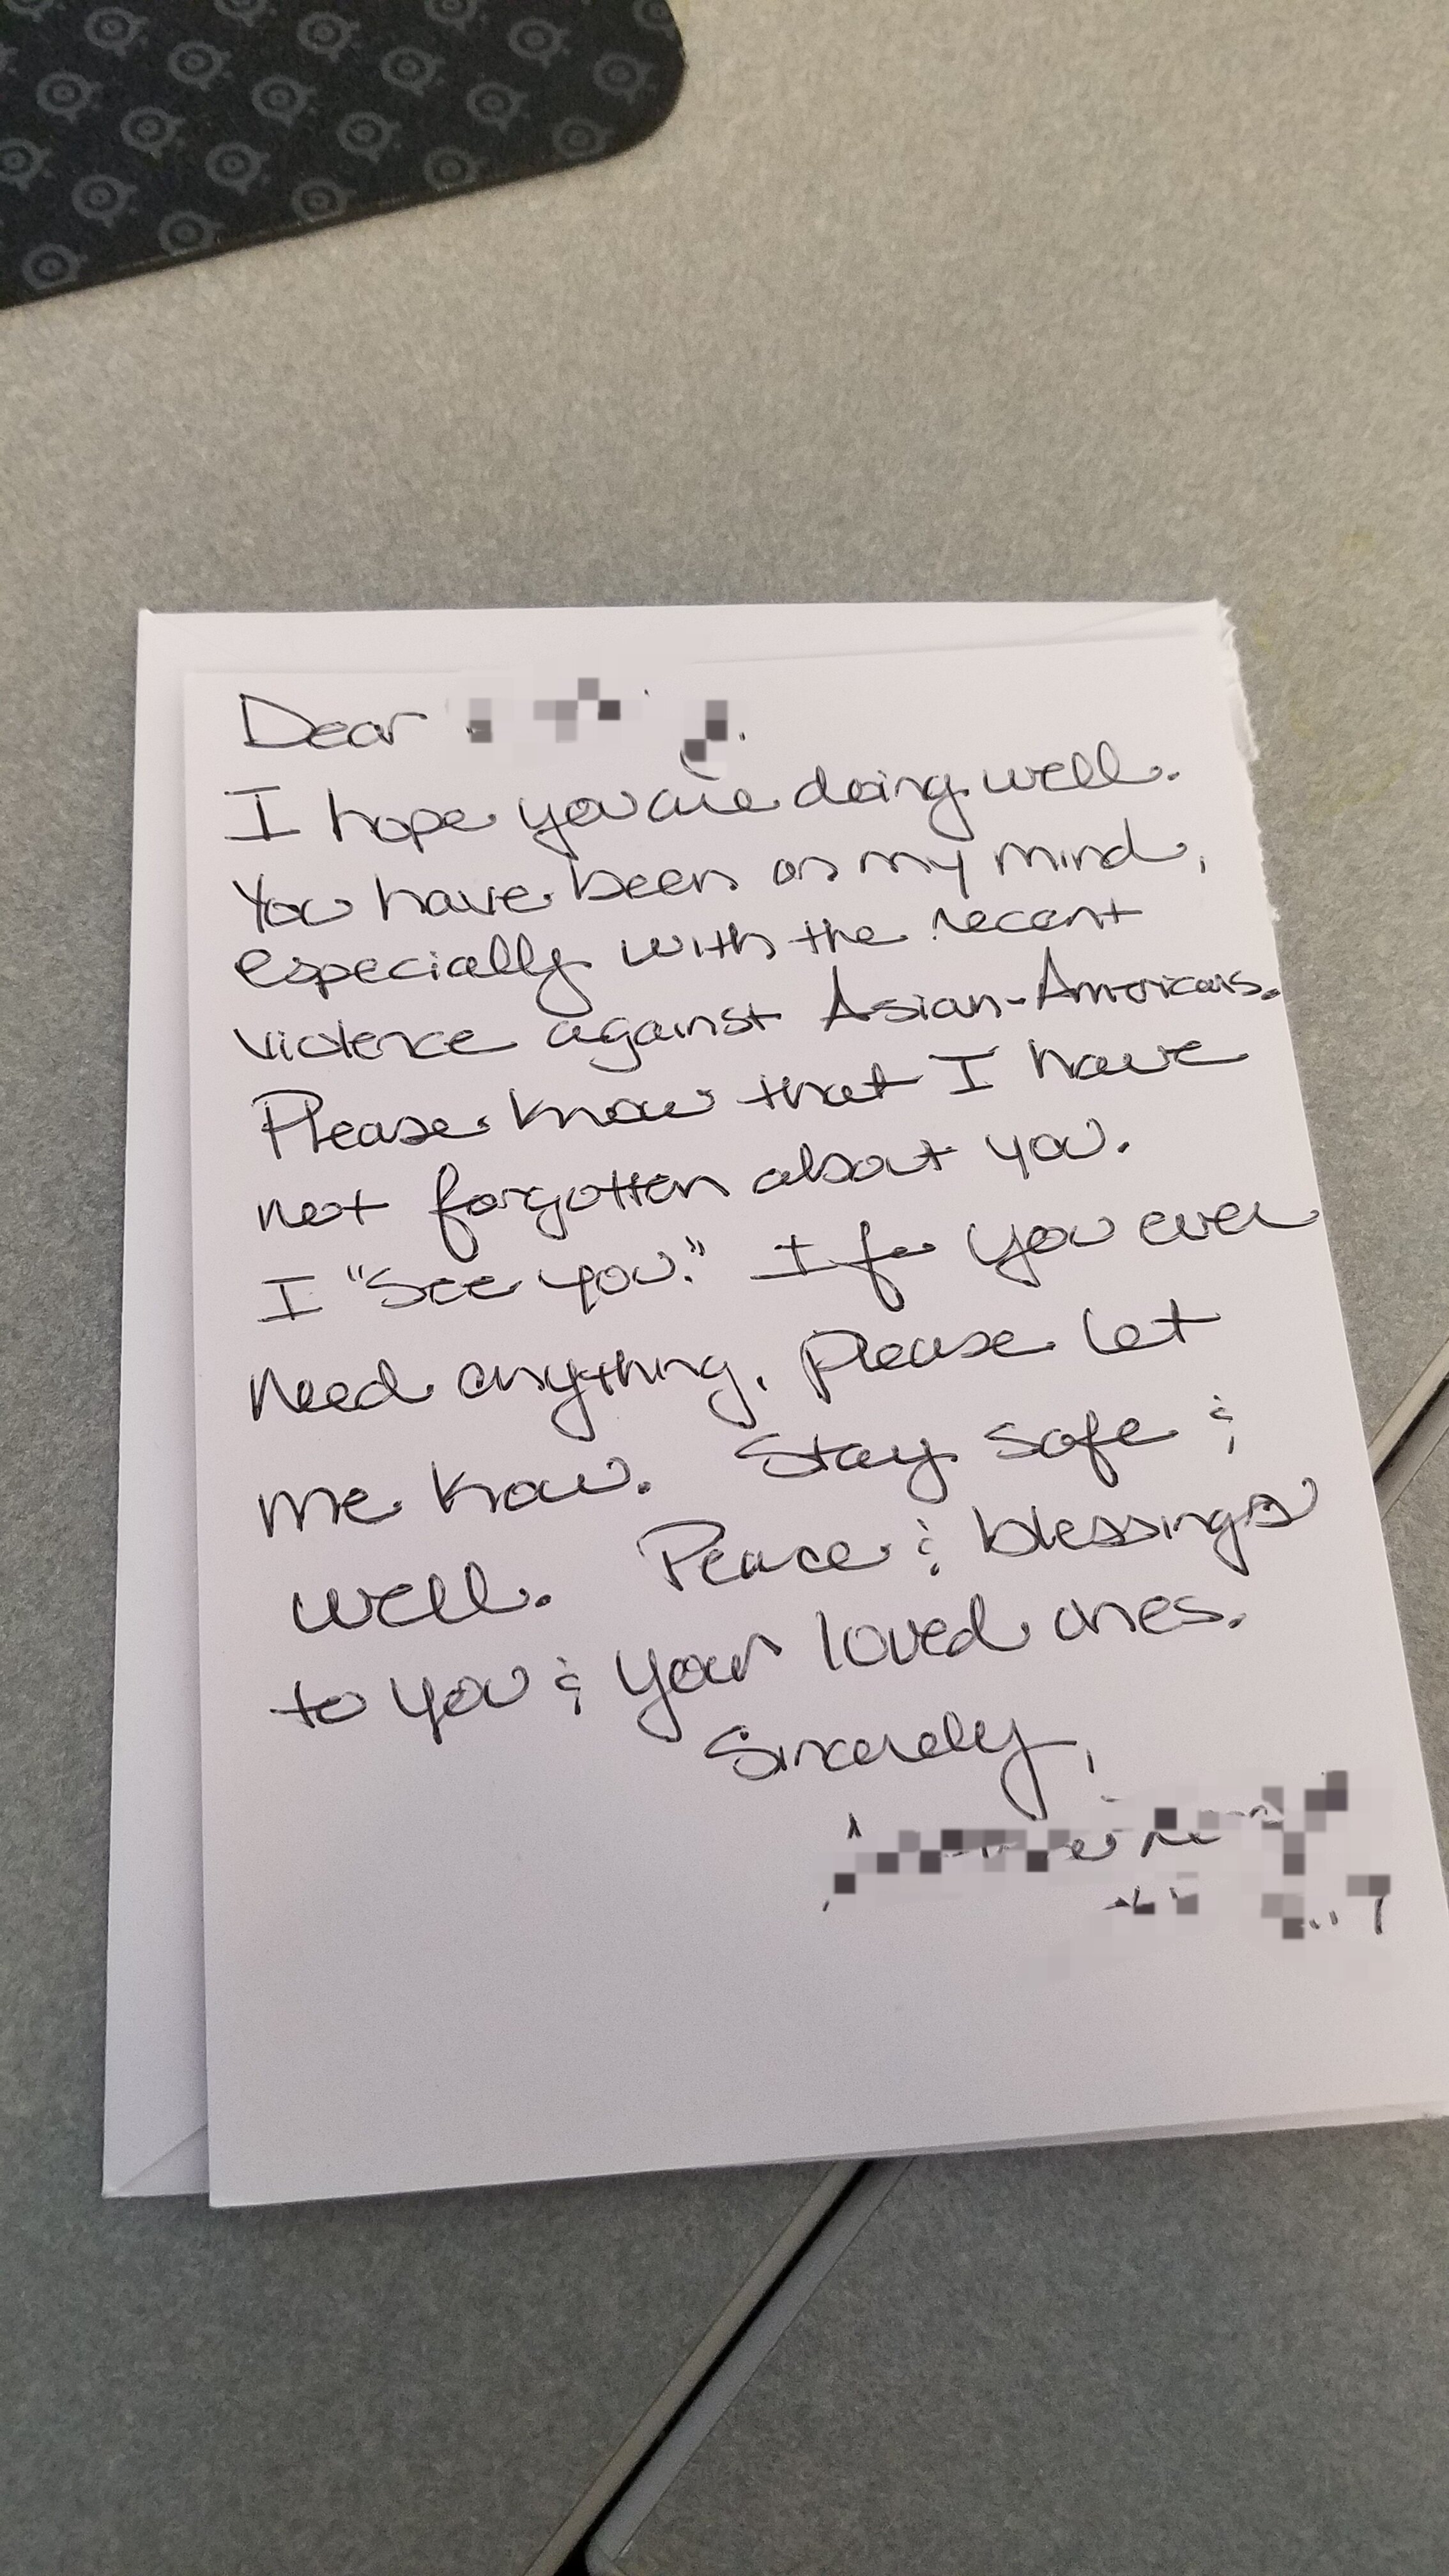 Dear
I hope you are doing well.
You have been on my mind,
especially with the recent
violence against Asian-Americans.
Please know that I have
not forgotten about you.
I "See you." If you ever
need anything, please let
me know. Stay safe &
well. Peace & blessings
to you & your loved ones.
Sincerely,